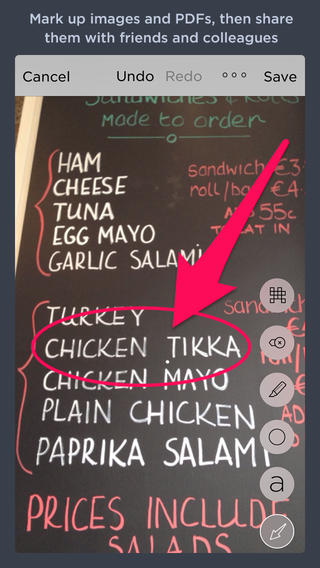 Mark up images and PDFs, then share
them with friends and colleagues
Cancel Undo Redo Save
Sandwiches & Rolls
Made to order
HAM
CHEESE
TUNA
EGG MAYO
GARLIC SALAMI
sandwich €3
roll/ba €4
55c
EAT IN
TURKEY
CHICKEN TIKKA
CHICKEN MAYO
PLAIN CHICKEN
PAPRIKA SALAMI
sand
AD
PRICES INCLUDE
SALADS
a